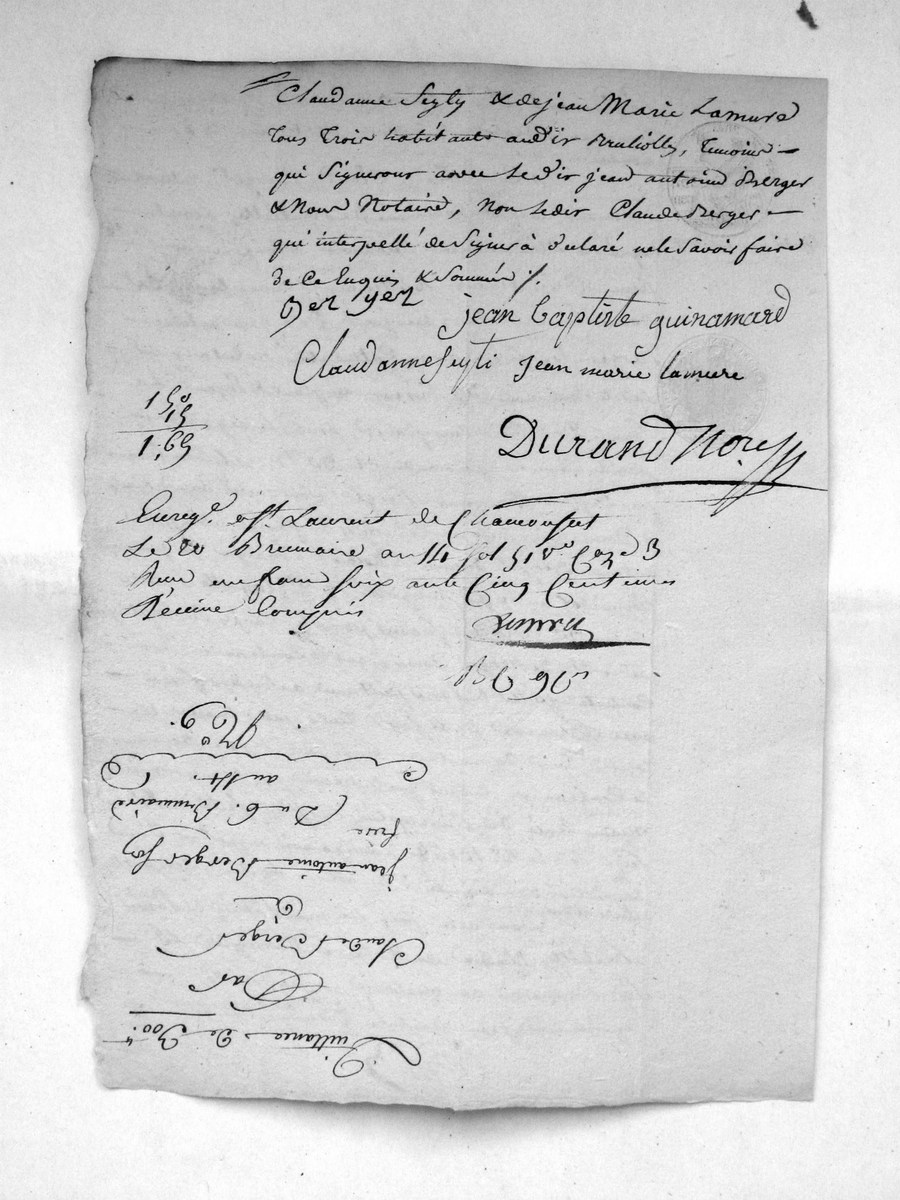 Claudanne Seyty & de jean Marie Lamure
tous trois habitants audit Brulliolles, temoins
qui signeront avec ledit jean antoine Berger
& Nous Notaire, Non ledit Claude Berger
qui interpellé de signer à déclaré ne le savoir faire
de ce Enquis & Sommé ./.
Berger jean baptiste guinamard
Claudanne seyti jean marie lamure
150
15
1,65
Durand Nore
Enregé. à St. Laurent de Chamousset
Le 20 Brumaire an 14 fol 51 vo Case 3
Reçu un franc soixante Cinq Centimes
Décime Compris
No 9.
an 14.
Du 6. Brumaire
frère
jean antoine Berger son
à
Claude Berger
Par
Quittance de 300 #